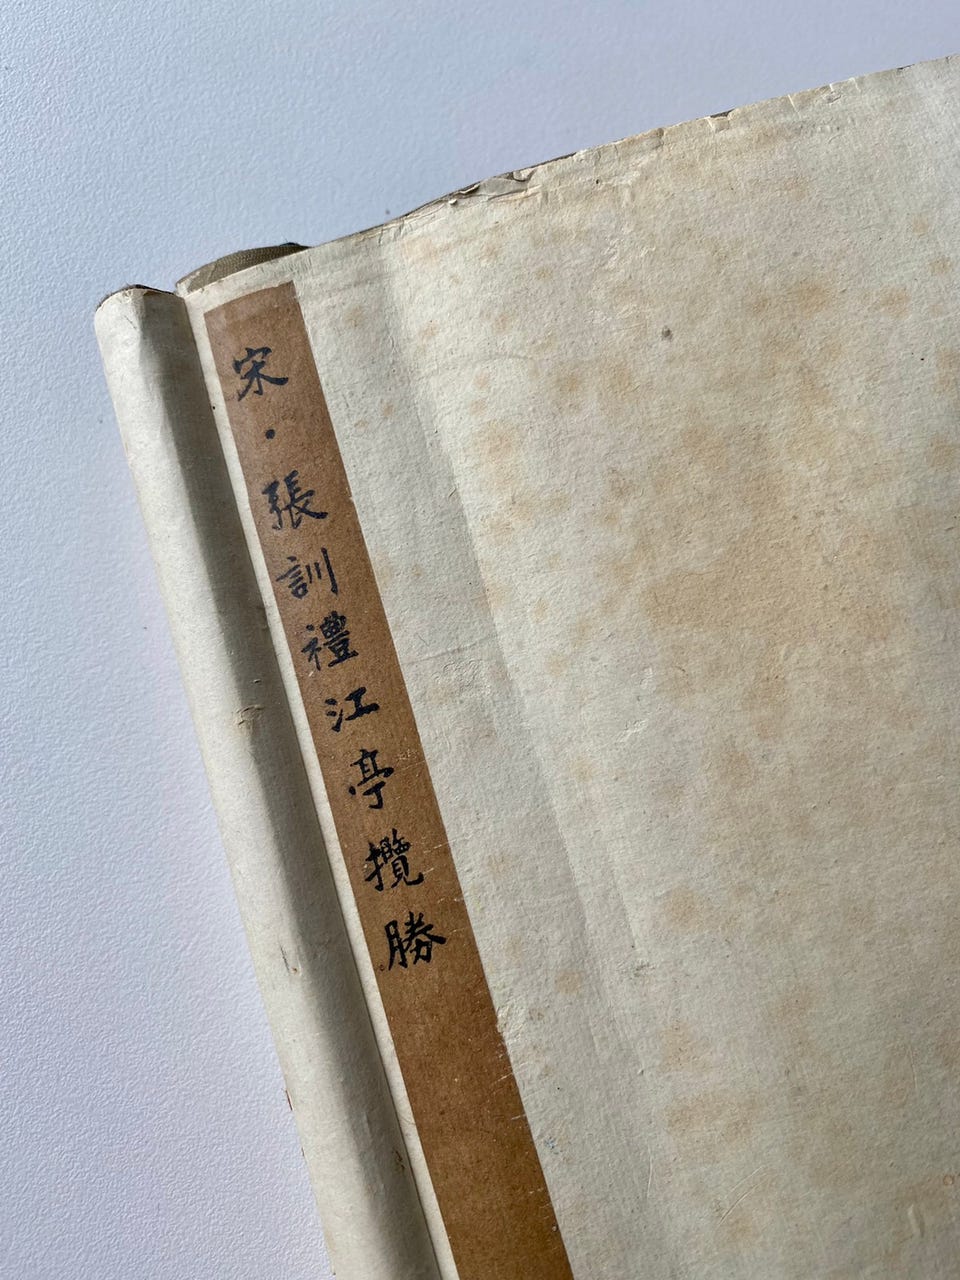 宋·張訓禮江亭攬勝